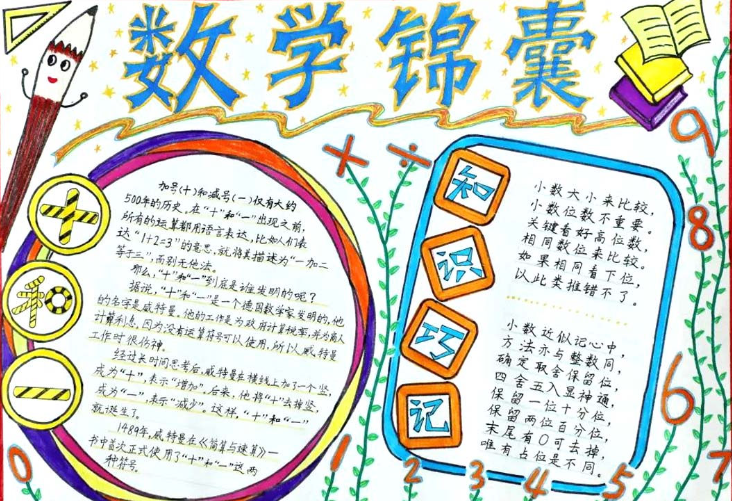 数学锦囊
+和-
加号(+)和减号(-)仅有大约
500年的历史,在“+”和“-”出现之前,
所有的运算都用语言表达,比如人们表
达“1+2=3”的意思,就将其描述为“一加二
等于三”,而别无他法。
那么,“+”和“-”到底是谁发明的呢?
据说,“+”和“-”是一个德国数学家发明的,他
的名字是威特曼,他的工作是为政府计算税率,并为商人
计算利息,因为没有运算符号可以使用,所以威特曼
工作时很伤神。
经过长时间思考后,威特曼在横线上加了一个竖,
成为“+”,表示“增加”,后来,他将“+”去掉竖,
成为“-”,表示“减少”。这样,“+”和“-”
就诞生了。
1489年,威特曼在《简算与速算》一
书中首次正式使用了“+”和“-”这两
种符号。
+ ÷
知识巧记
小数大小来比较,
小数位数不重要。
关键看好高位数,
相同数位来比较。
如果相同看下位,
以此类推错不了。
小数近似记心中,
方法亦与整数同,
确定取舍保留位,
四舍五入显神通,
保留一位十分位,
保留两位百分位,
末尾有0可去掉,
唯有占位是不同。
0 1 2 3 4 5 6 7 8 9